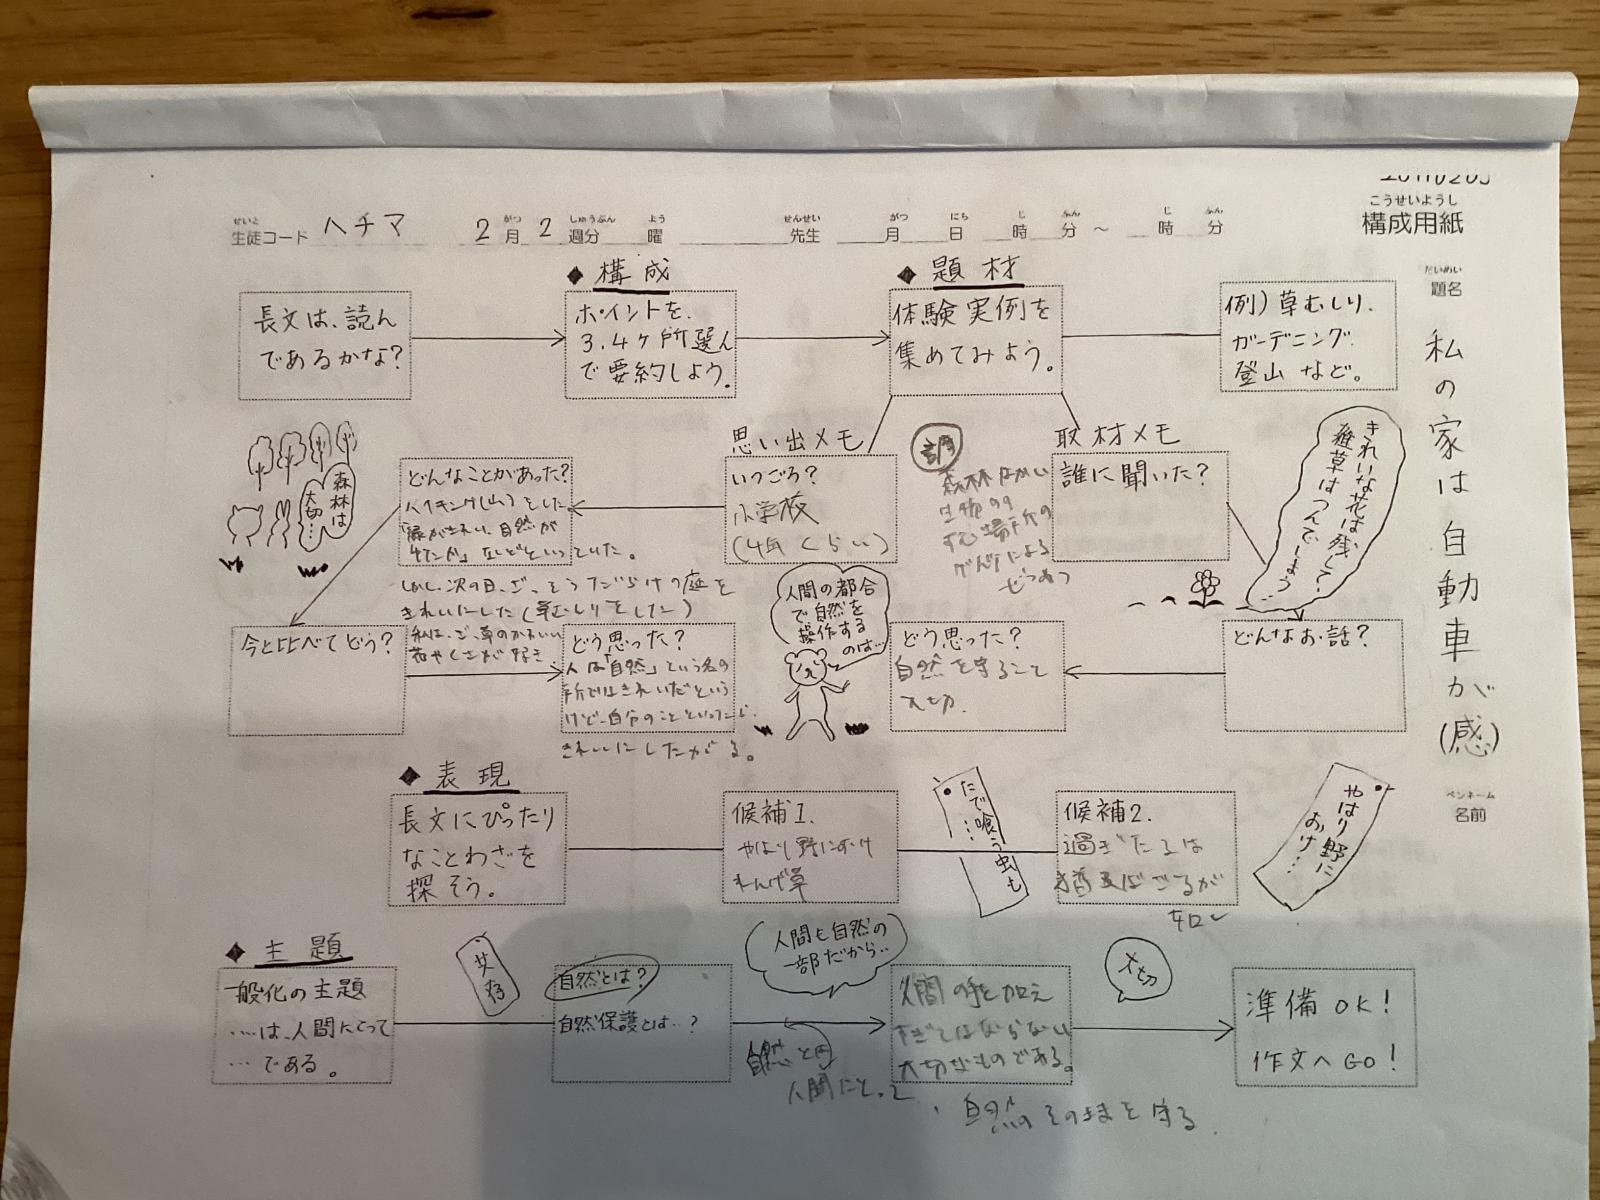 こうせいようし
構成用紙
せいと
生徒コード ハチマ 2月2週分 曜 先生 月 日 時 分 〜 時 分
がつ しゅうぶん よう せんせい がつ にち じ ふん じ ふん
だいめい
題名
私の家は自動車が(感)
ペンネーム
名前
◆構成
◆題材
長文は、読ん
であるかな?
ポイントを、
3.4ヶ所選ん
で要約しよう。
体験実例を
集めてみよう。
例)草むしり、
ガーデニング、
登山など。
思い出メモ
いつごろ?
小学校
(4年くらい)
取材メモ
誰に聞いた?
きれいな花は残して…
雑草はつんでしまう…
どんなお話?
どんなことがあった?
ハイキング(山)をした
「緑がきれい、自然が
などといっていた。
しかし、次の日、ざっそうだらけの庭を
きれいにした(草むしりをした)
森林は
大切…
今と比べてどう?
どう思った?
人は「自然」という名の
所ではきれいだという
けど、自分のことといったら、
きれいにしたがる。
人間の都合
で自然を
操作する
のは…
どう思った?
自然を守ること
大切.
◆表現
長文にぴったり
なことわざを
探そう。
候補1.
やはり野におけ
れんげ草
たで喰う虫も
…
候補2.
過ぎたるは
猶及ばざるが
如し
やはり野に
おけ…
◆主題
一般化の主題
…は、人間にとって
…である。
共存
自然とは?
自然保護とは…?
人間も自然の
一部だから…
人間の手を加え
すぎてはならない
大切なものである。
人間にとって
自然のそのままを守る
大切
準備OK!
作文へGO!